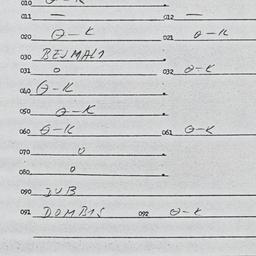 010 O-K
011 — 012 —
020 O-K 021 O-K
030 BEJMALI
031 O 032 O-K
040 O-K
050 O-K
060 O-K 061 O-K
070 O
080 O
090 DUB
091 DOMBIS 092 O-K